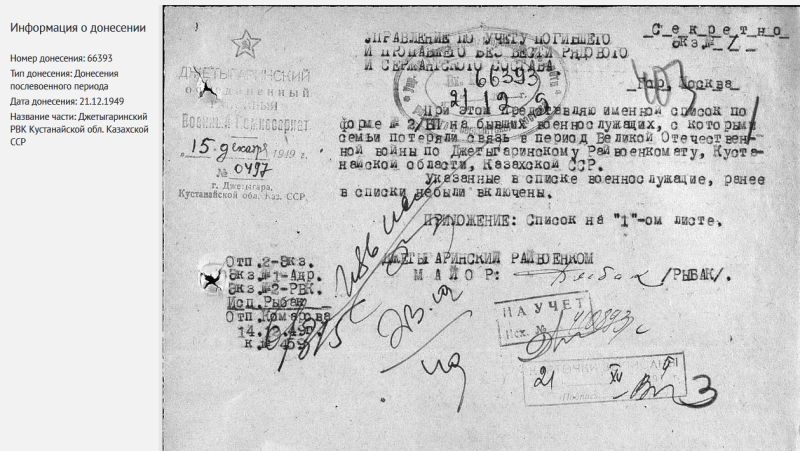 Информация о донесении
Номер донесения: 66393
Тип донесения: Донесения
послевоенного периода
Дата донесения: 21.12.1949
Название части: Джетыгаринский
РВК Кустанайской обл. Казахской
ССР
С е к р е т н о
Экз.№ 1
УПРАВЛЕНИЕ ПО УЧЕТУ ПОГИБШЕГО
И ПРОПАВШЕГО БЕЗ ВЕСТИ РЯДОВОГО
И СЕРЖАНТСКОГО СОСТАВА
66393
21 12
гор. Москва
ДЖЕТЫГАРИНСКИЙ
Военный Комиссариат
"15" декабря 1949 г.
№ 0497
г. Джетыгара,
Кустанайской обл. Каз. ССР
При этом представляю именной список по
форме № 2/БП на бывших военнослужащих, с которыми
семьи потеряли связь в период Великой Отечествен-
ной войны по Джетыгаринскому Райвоенкомату, Куста-
найской области, Казахской ССР.
Указанные в списке военнослужащие, ранее
в списки небыли включены.
ПРИЛОЖЕНИЕ: Список на "1"-ом листе.
ДЖЕТЫГАРИНСКИЙ РАЙВОЕНКОМ
М А Й О Р: /РЫБАК/.
Отп.2-Экз.
Экз.№1-Адр.
Экз.№2-РВК.
Исп.Рыбак
Отп.Комарова
14.12.49г.
НА УЧЕТ
Исх. №
21 XII